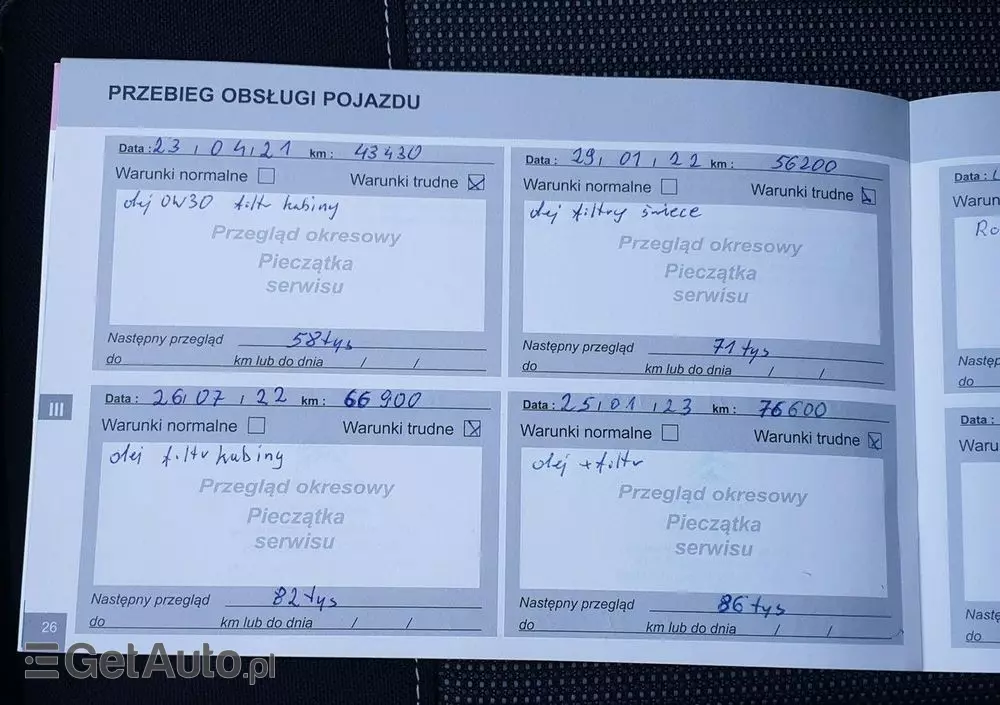 PRZEBIEG OBSŁUGI POJAZDU
Data : 23 , 04, 21 km : 43430
Warunki normalne Warunki trudne
olej 0W30 filtr kabiny
Przegląd okresowy
Pieczątka
serwisu
Następny przegląd 58 tys
do km lub do dnia / /
Data : 29, 01 , 22 km : 56200
Warunki normalne Warunki trudne
olej filtry świece
Przegląd okresowy
Pieczątka
serwisu
Następny przegląd 71 tys
do km lub do dnia / /
III
Data : 26, 07 , 22 km : 66900
Warunki normalne Warunki trudne
olej filtr kabiny
Przegląd okresowy
Pieczątka
serwisu
Następny przegląd 82 tys
do km lub do dnia / /
Data : 25, 01 , 23 km : 76600
Warunki normalne Warunki trudne
olej + filtr
Przegląd okresowy
Pieczątka
serwisu
Następny przegląd 86 tys
do km lub do dnia / /
26
Data :
Warun
Ro
Następ
do
Data :
Waru
Nastę
do
GetAuto.pl